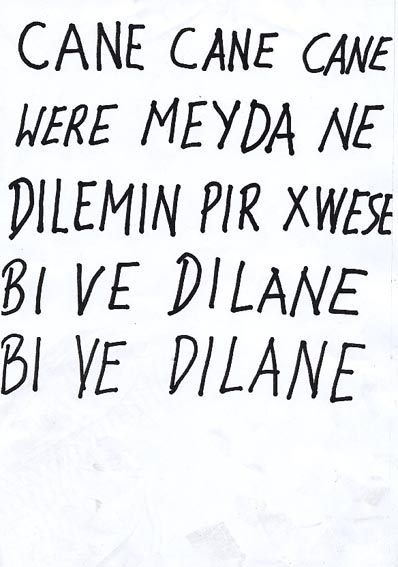 CANE CANE CANE
WERE MEYDA NE
DILEMIN PIR XWESE
BI VE DILANE
BI VE DILANE